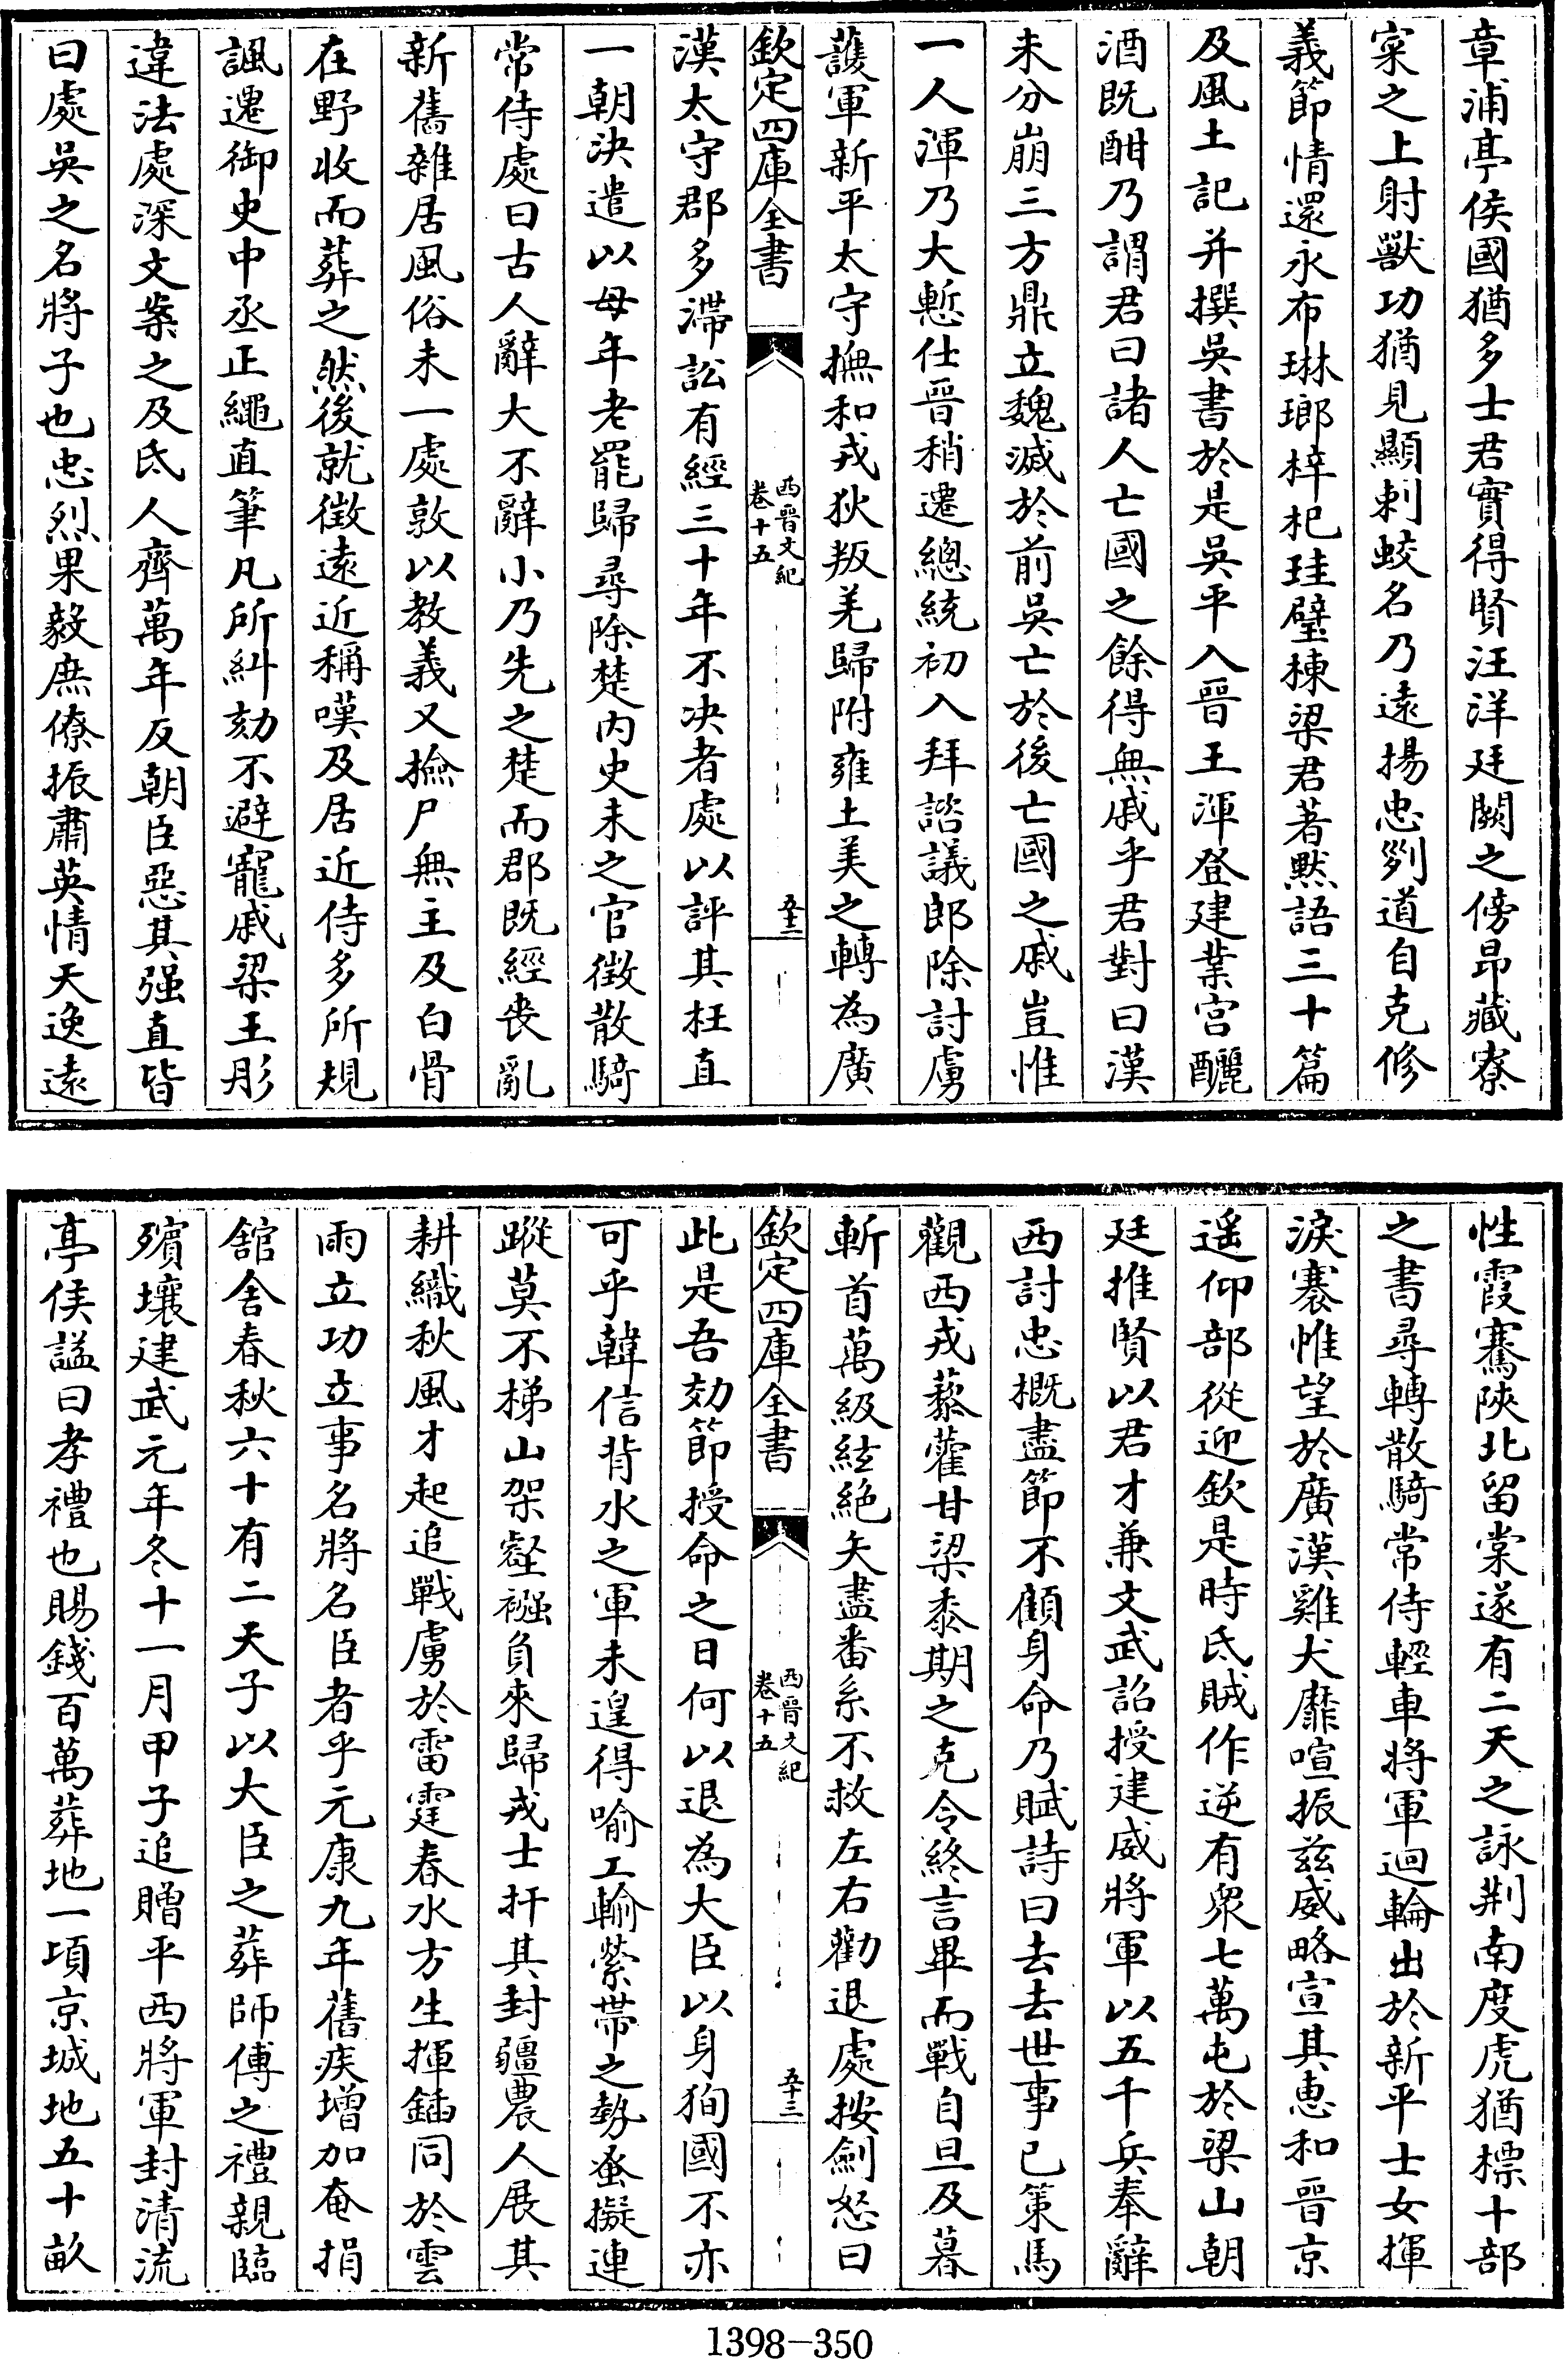 章浦亭侯國猶多士君實得賢汪洋廷闕之傍昂藏寮
寀之上射獸功猶見顯刺蛟名乃遠揚忠烈道自克修
義節情還永布琳瑯梓杞珪璧棟梁君著默語三十篇
及風土記并撰吳書於是吳平入晉王渾登建業宫釃
酒既酣乃謂君曰諸人亡國之餘得無戚乎君對曰漢
未分崩三方鼎立魏滅於前吳亡於後亡國之戚豈惟
一人渾乃大慙仕晉稍遷總統初入拜諮議郎除討虜
護軍新平太守撫和戎狄叛羌歸附雍土美之轉為廣
欽定四庫全書
西晉文紀
卷十五
五十二
漢太守郡多滯訟有經三十年不决者處以評其枉直
一朝决遣以母年老罷歸尋除楚内史未之官徴散騎
常侍處曰古人辭大不辭小乃先之楚而郡既經喪亂
新舊雜居風俗未一處敦以教義又撿尸無主及白骨
在野收而葬之然後就徴遠近稱嘆及居近侍多所規
諷遷御史中丞正繩直筆凡所糾劾不避寵戚梁王肜
違法處深文案之及氐人齊萬年反朝臣惡其强直皆
曰處吳之名將子也忠烈果毅庶僚振肅英情天逸遠
性霞騫陝北留棠遂有二天之詠荆南度虎猶標十部
之書尋轉散騎常侍輕車將軍迴輪出於新平士女揮
淚褰帷望於廣漢雞犬靡喧振兹威略宣其惠和晉京
遥仰部從迎欽是時氐賊作逆有衆七萬屯於梁山朝
廷推賢以君才兼文武詔授建威將軍以五千兵奉辭
西討忠概盡節不顧身命乃賦詩曰去去世事已策馬
觀西戎藜藿甘梁黍期之克令終言畢而戰自旦及暮
斬首萬級絃絶矢盡番系不救左右勸退處按劍怒曰
欽定四庫全書
西晉文紀
卷十五
五十三
此是吾効節授命之日何以退為大臣以身狥國不亦
可乎韓信背水之軍未遑得喻工輸縈帶之勢蚤擬連
蹤莫不梯山架壑襁負來歸戎士扞其封疆農人展其
耕織秋風才起追戰虜於雷霆春水方生揮鍤同於雲
雨立功立事名將名臣者乎元康九年舊疾增加奄捐
舘舍春秋六十有二天子以大臣之葬師傅之禮親臨
殯壤建武元年冬十一月甲子追贈平西將軍封清流
亭侯諡曰孝禮也賜錢百萬葬地一頃京城地五十畝
1398-350